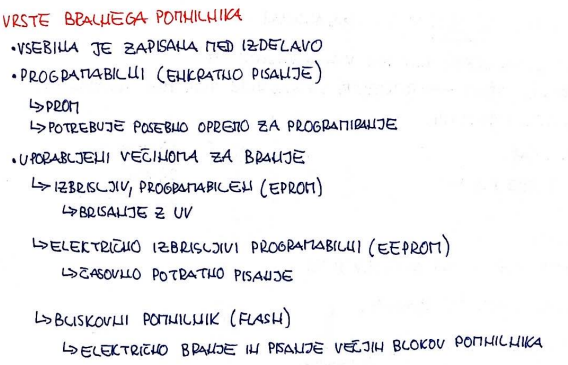 VRSTE BRALNEGA POMNILNIKA
• VSEBINA JE ZAPISANA MED IZDELAVO
• PROGRAMABILNI (ENKRATNO PISANJE)
↳ PROM
↳ POTREBUJE POSEBNO OPREMO ZA PROGRAMIRANJE
• UPORABLJENI VEČINOMA ZA BRANJE
↳ IZBRISLJIV, PROGRAMABILEN (EPROM)
↳ BRISANJE Z UV
↳ ELEKTRIČNO IZBRISLJIVI PROGRAMABILNI (EEPROM)
↳ ČASOVNO POTRATNO PISANJE
↳ BLISKOVNI POMNILNIK (FLASH)
↳ ELEKTRIČNO BRANJE IN PISANJE VEČJIH BLOKOV POMNILNIKA